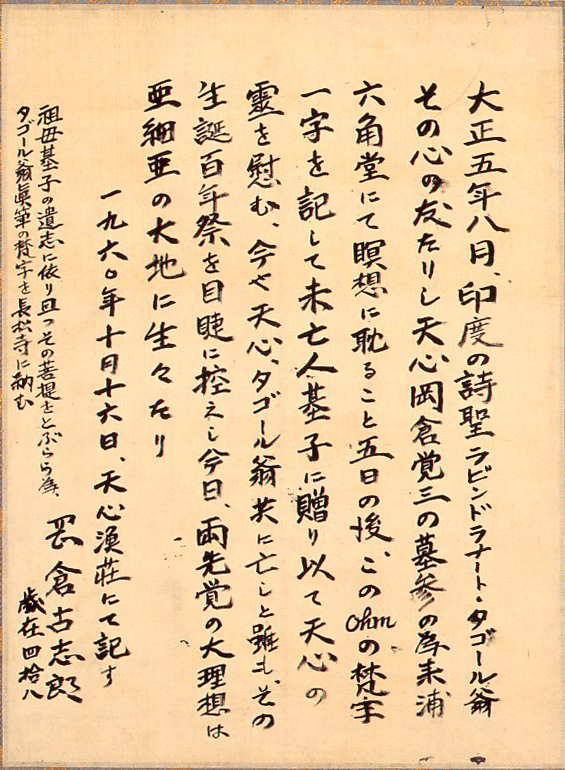 大正五年八月、印度の詩聖ラビンドラナート・タゴール翁
その心の友たりし天心岡倉覚三の墓参の為来浦
六角堂にて瞑想に耽ること五日の後、この ohm の梵字
一字を記して未亡人基子に贈り以て天心の
霊を慰む、今や天心、タゴール翁共に亡しと雖も、その
生誕百年祭を目睫に控えし今日、両先覚の大理想は
亜細亜の大地に生々たり
一九六〇年十月十六日、天心漁荘にて記す
岡倉古志郎
歳在四拾八
祖母基子の遺志に依り且つその菩提をとぶらう為、
タゴール翁眞筆の梵字を長松寺に納む